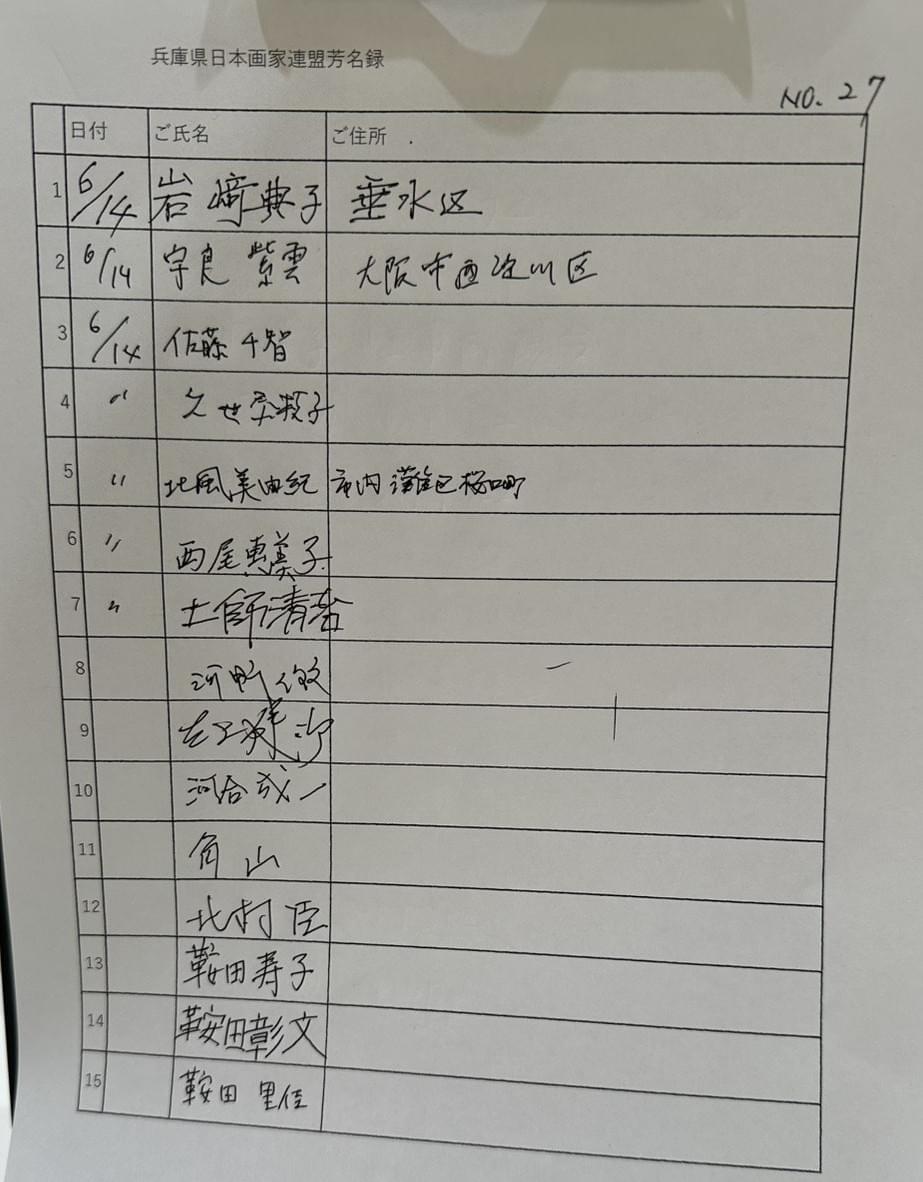 兵庫県日本画家連盟芳名録
NO. 27
日付 ご氏名 ご住所
1 6/14 岩﨑典子 垂水区
2 6/14 宇良 紫雲 大阪市西淀川区
3 6/14 佐藤 千智
4 〃 久世
5 〃 北風美由紀 市内灘区桜口町
6 〃 西尾惠美子
7 〃 土師清
8 河野
9
10 河合成一
11 角山
12 北村 臣
13 鞍田寿子
14 鞍田彰文
15 鞍田 里佳